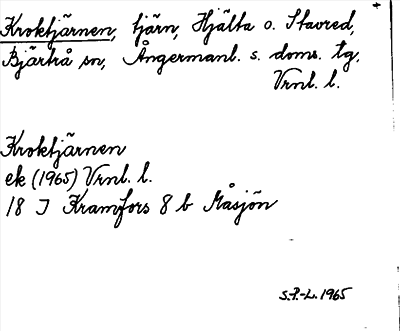 Kroktjärnen, tjärn, Hjälta o. Stavred,
Bjärtrå sn, Ångermanl. s. doms. tg.
Vrnl. l.
Kroktjärnen
ek (1965) Vrnl. l.
18 I Kramfors 8 b Måsjön
S.P.-L. 1965